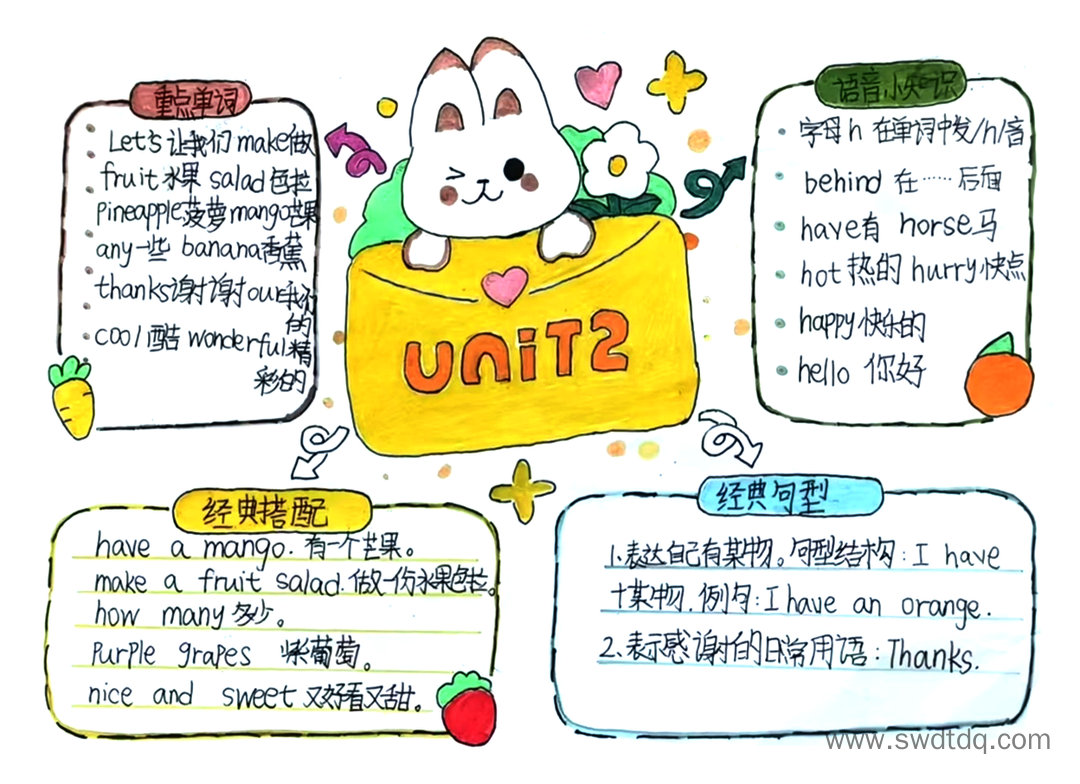 重点单词
Let's 让我们 make做
fruit 水果 salad 色拉
Pineapple菠萝 mango芒果
any一些 banana香蕉
thanks谢谢 our我们
的
cool酷 wonderful精
彩的
UNIT2
语音小知识
字母h 在单词中发/h/音
behind 在……后面
have有 horse马
hot 热的 hurry快点
happy快乐的
hello 你好
经典搭配
have a mango. 有一个芒果。
make a fruit salad. 做一份水果色拉。
how many 多少。
purple grapes 紫葡萄。
nice and sweet 又好看又甜。
经典句型
1.表达自己有某物。句型结构:I have
+某物. 例句:I have an orange.
2.表示感谢的日常用语:Thanks.
www.swdtdq.com